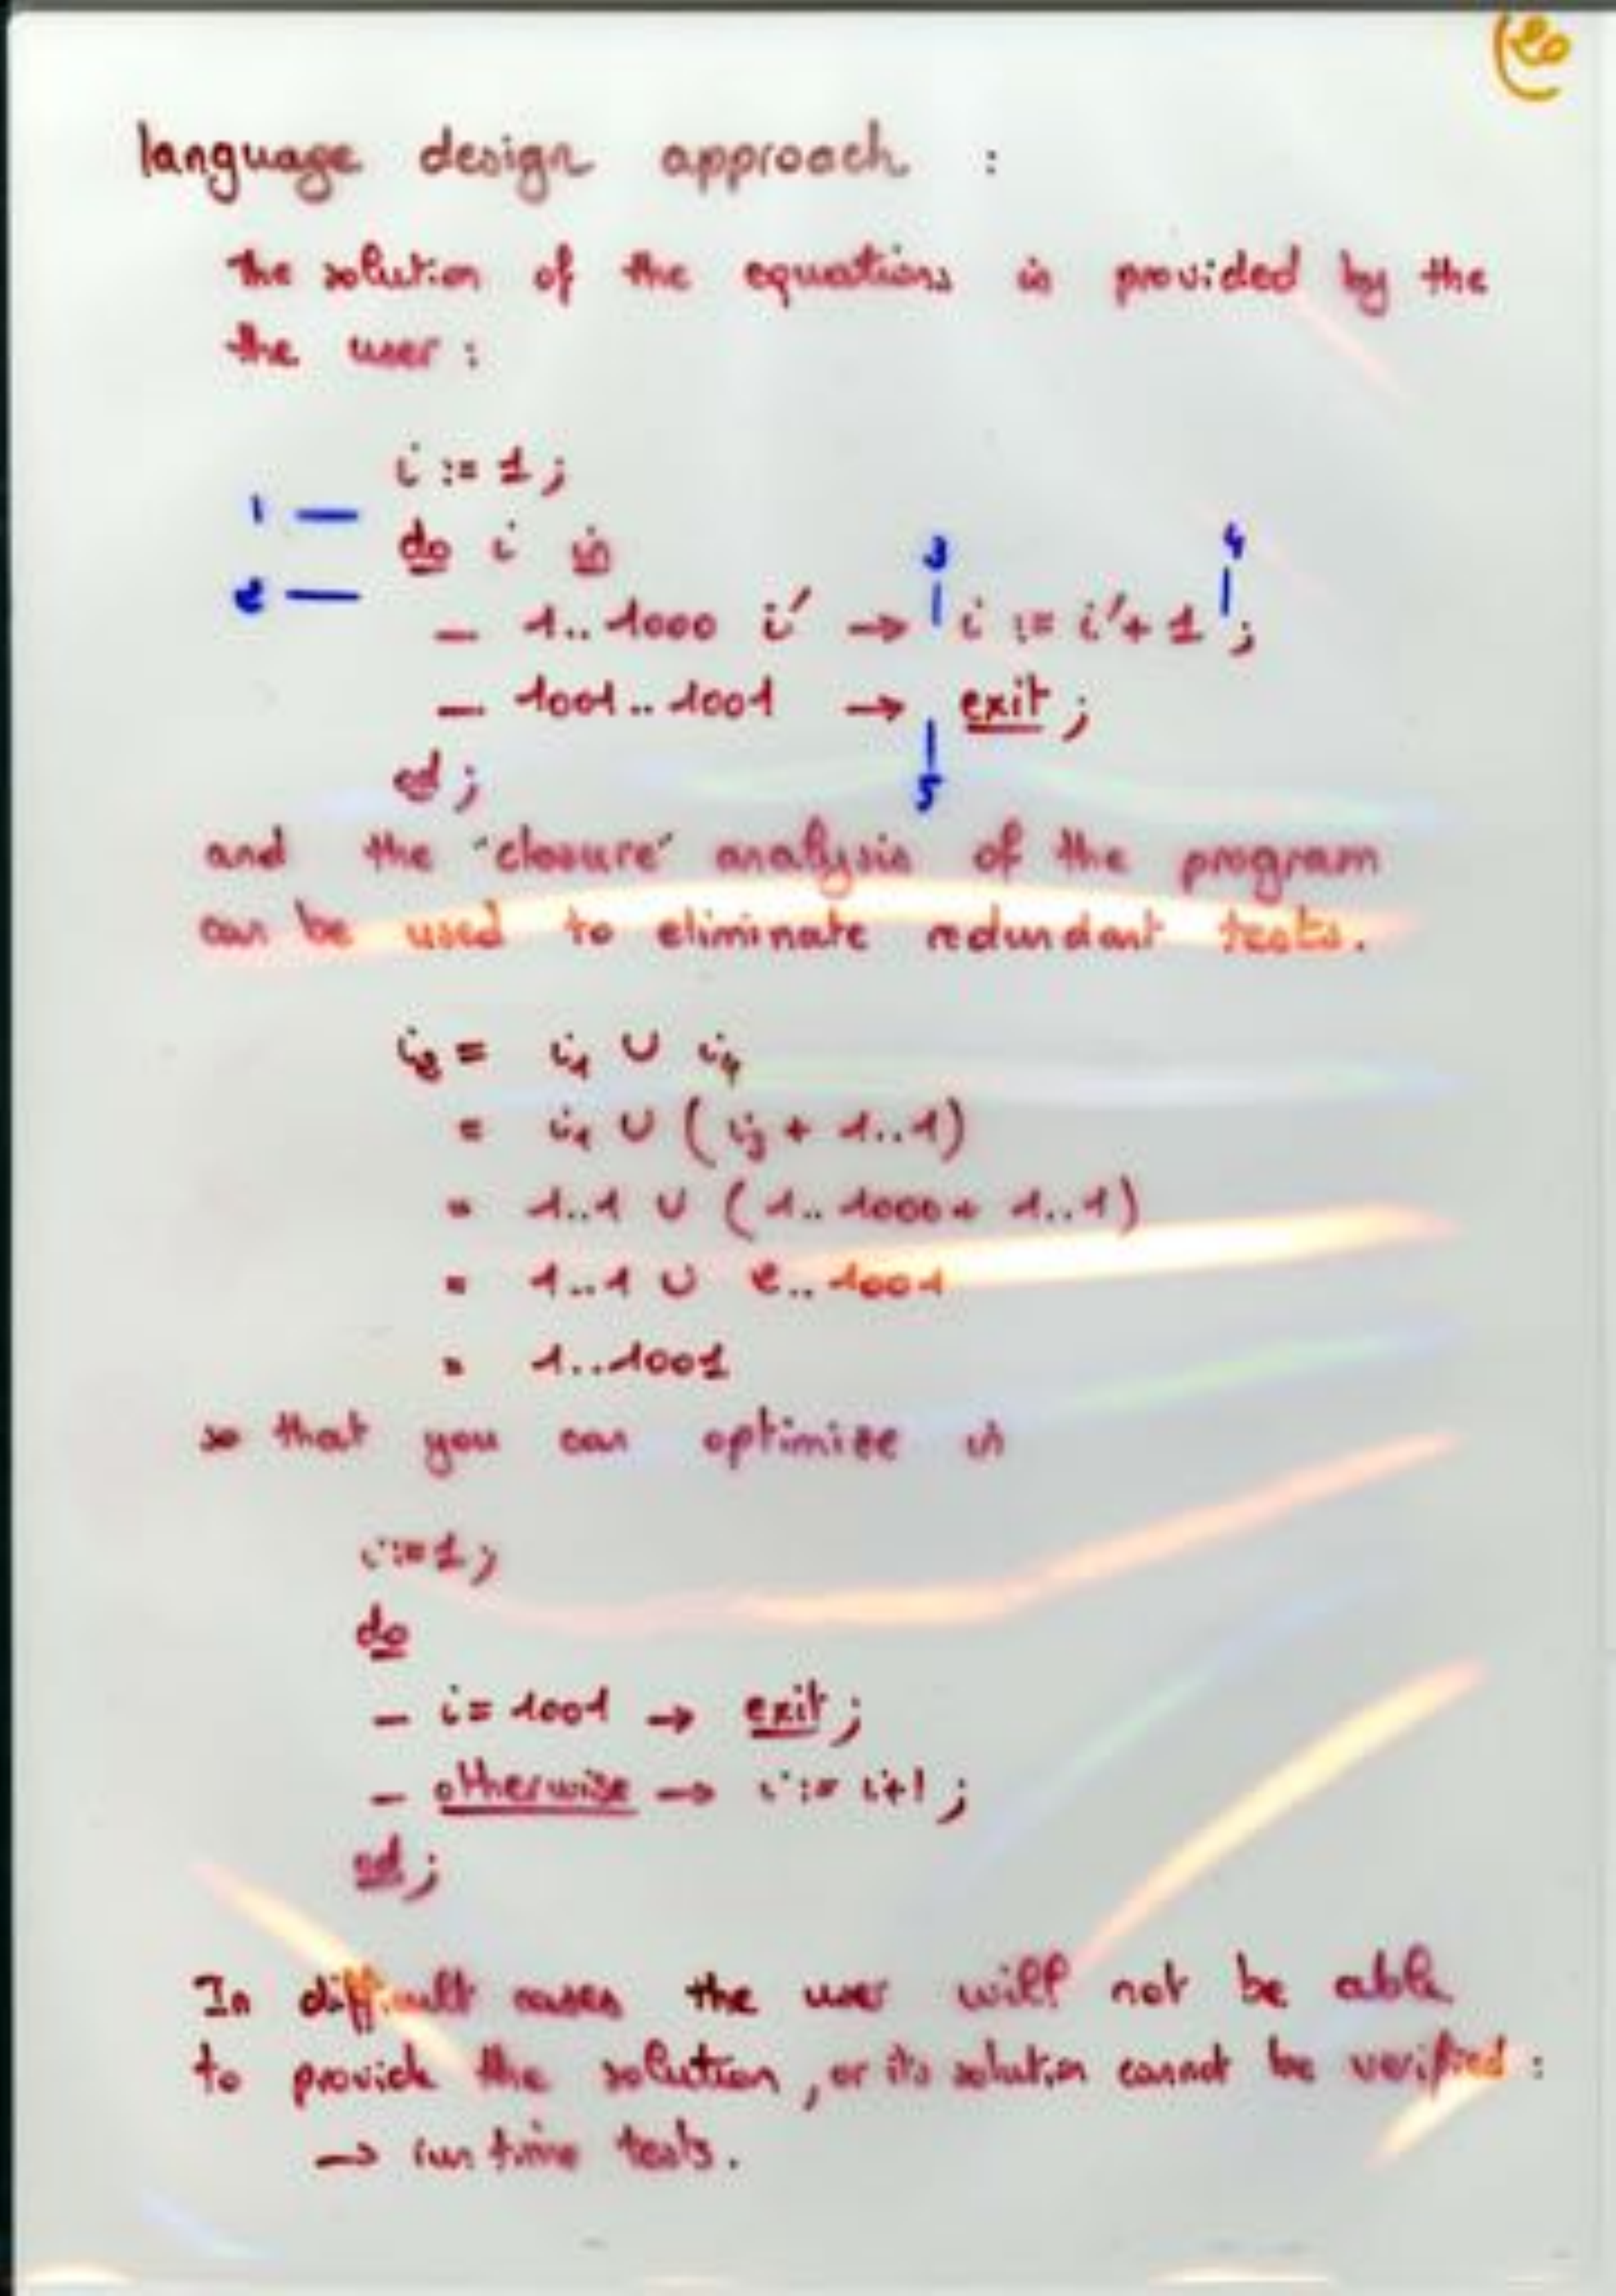 language design approach :
the solution of the equations is provided by the
the user :
i := 1 ;
1 —
do i in
3
4
2 —
— 1..1000 i' → i := i'+ 1 ;
— 1001..1001 → exit ;
od ;
5
and the "closure" analysis of the program
can be used to eliminate redundant tests.
i2 = i1 ∪ i4
= i1 ∪ ( i3 + 1..1 )
= 1..1 ∪ ( 1..1000 + 1..1 )
= 1..1 ∪ 2..1001
= 1..1001
so that you can optimize in
i := 1 ;
do
— i = 1001 → exit ;
— otherwise → i := i+1 ;
od ;
In difficult cases the user will not be able
to provide the solution , or its solution cannot be verified :
→ run time tests .